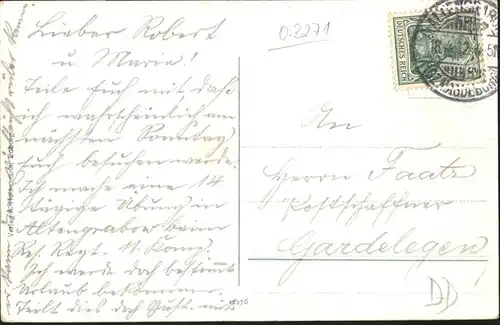 Lieber Robert
u. Maria!
Teile Euch mit daß
ich wahrscheinlich am
nächsten Sonntag
Euch besuchen werde.
Ich mache eine 14
tägige Übung in
Altengrabow beim
Res. Regt. 11. Komp.
Ich werde doch bestimmt
Urlaub bekommen.
Teilt dies doch Gust.
0-3271
DEUTSCHES REICH
An
Herrn Faatz
Postschaffner
Gardelegen
DD